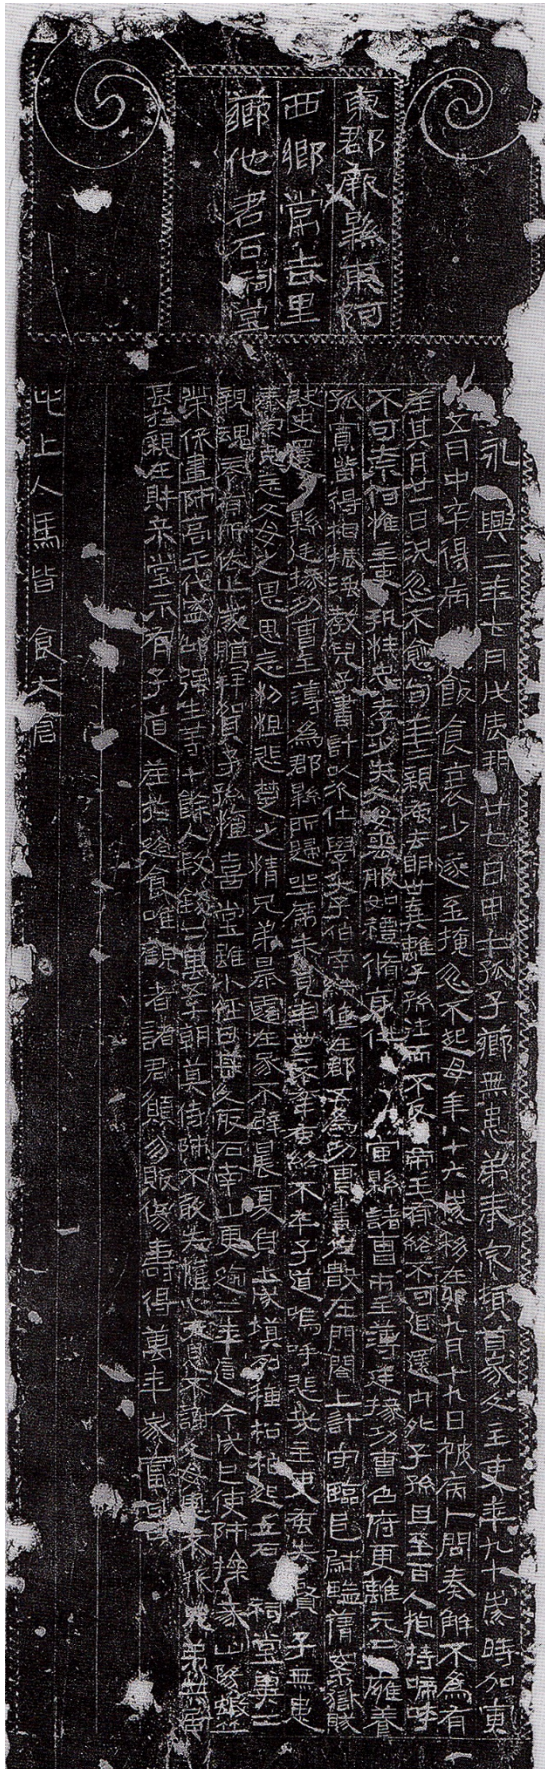 東郡厥縣東阿
西鄉常吉里
薌他君石祠堂
永興二年七月戊辰朔廿七日甲午孤子薌無患弟奉宗頓首家父主吏年九十歲時加寅
五月中卒得病飯食衰少遂至掩忽不起母年八十六歲移在卯九月十九日被病卜問奏解不為有
差其月廿一日況忽不愈旬年二親強去明世棄離子孫往而不反帝王有終不可追還內外子孫且至百人抱持啼呼
不可奈何惟主吏夙性忠孝少失父母喪服如禮脩身仕宦縣諸曹市主簿廷掾功曹召府更離元二雍養
孤寡皆得相振獨教兒子書計以次仕學大子伯南在郡五為功曹書佐在門閤上計守臨邑尉監案獄賊
決史還縣廷掾功曹主簿為郡縣所歸坐席未竟年卌二不幸早終不卒子道嗚呼悲哉主吏早失賢子無患
奉宗克念父母之恩思念忉怛悲楚之情兄弟暴露在冢不辟晨夏負土成墳列種松柏起立石祠堂冀二
親魂零有所依止歲臘拜賀子孫懽喜堂雖小經日甚久取石南山更逾二年迄今成已使師操義山陽蝦丘
榮保畫師高平代盛邵強生等十餘人段錢二萬五千朝莫侍師不敢失懽心天恩不謝父母恩不報兄弟共處
甚於親在財立小堂示有子道差於路食唯觀者諸君願勿販傷壽得萬年家富昌
此上人馬皆食大倉